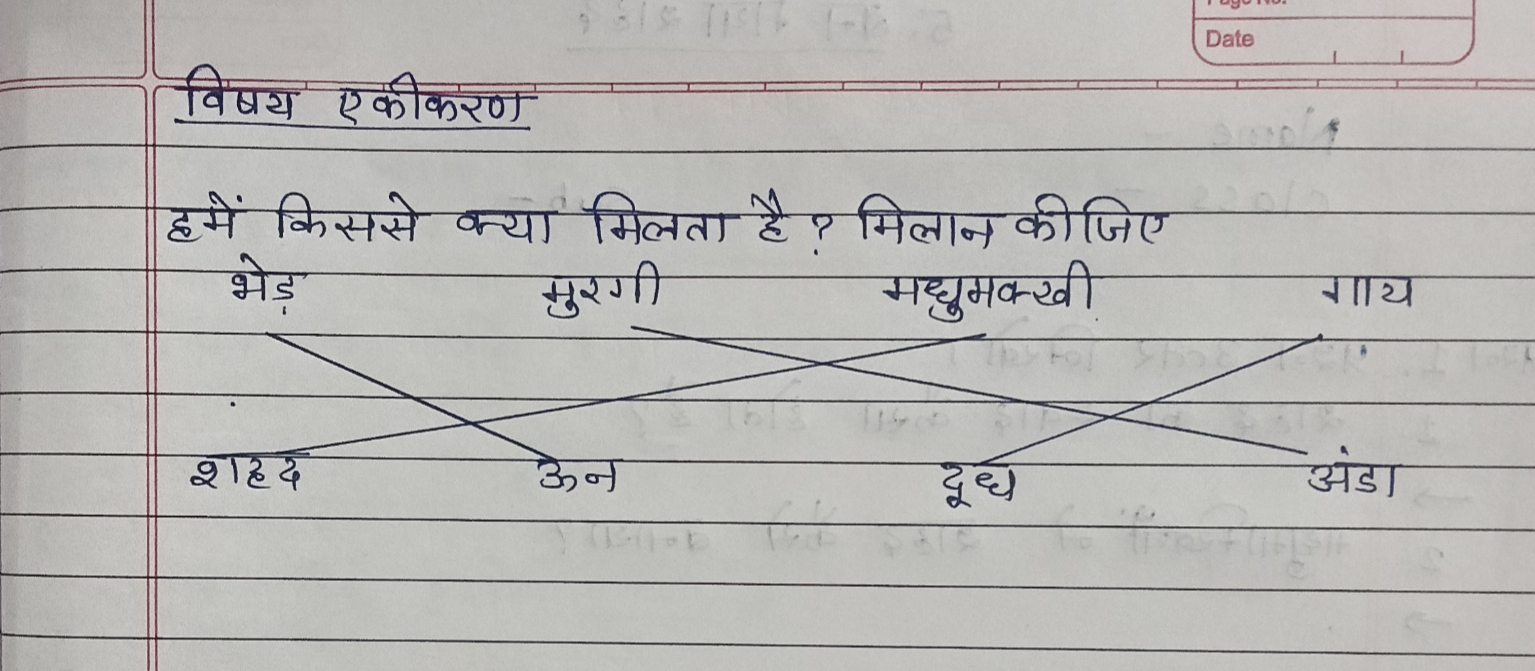 Page No.
Date
विषय एकीकरण
हमें किससे क्या मिलता है ? मिलान कीजिए
भेड़ मुरगी मधुमक्खी गाय
शहद ऊन दूध अंडा